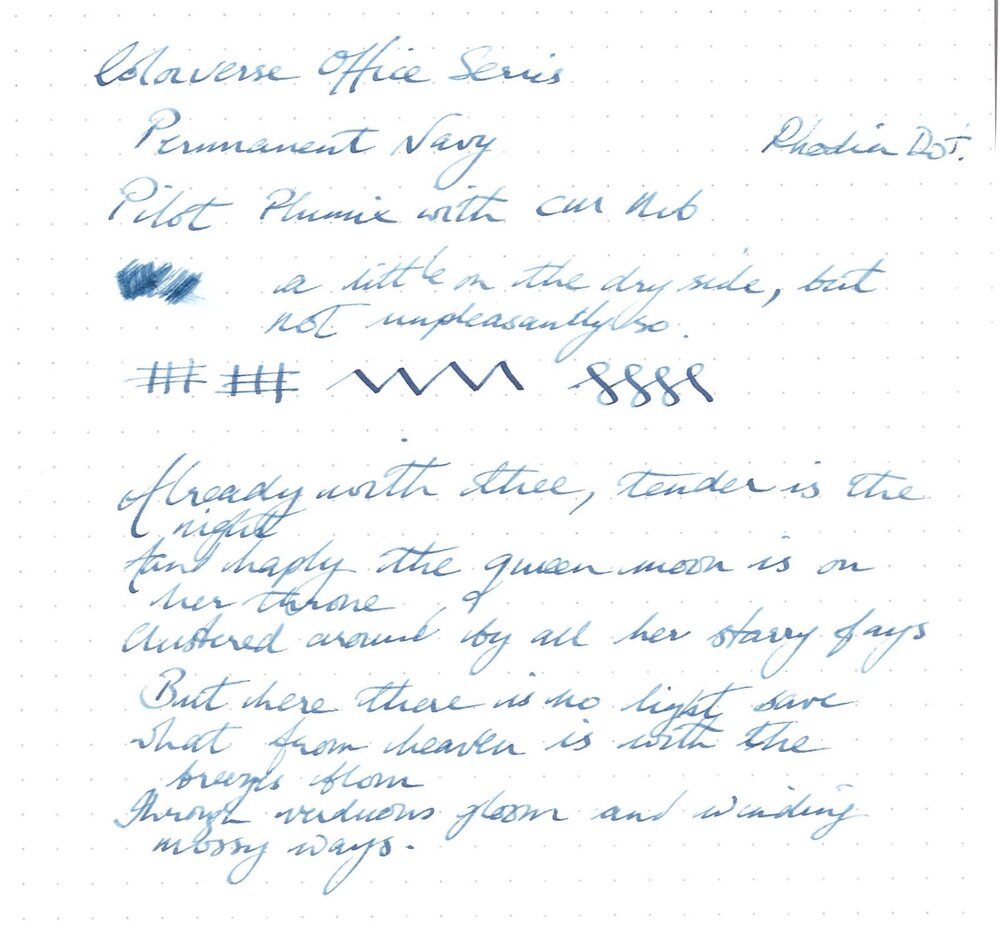 Colorverse Office Series
Permanent Navy
Rhodia Dot.
Pilot Plumix with CM Nib
a little on the dry side, but
not unpleasantly so.
Already with thee, tender is the
night
And haply the queen moon is on
her throne
Clustered around by all her starry fays
But here there is no light save
what from heaven is with the
breezes blown
Through verduous gloom and winding
mossy ways.